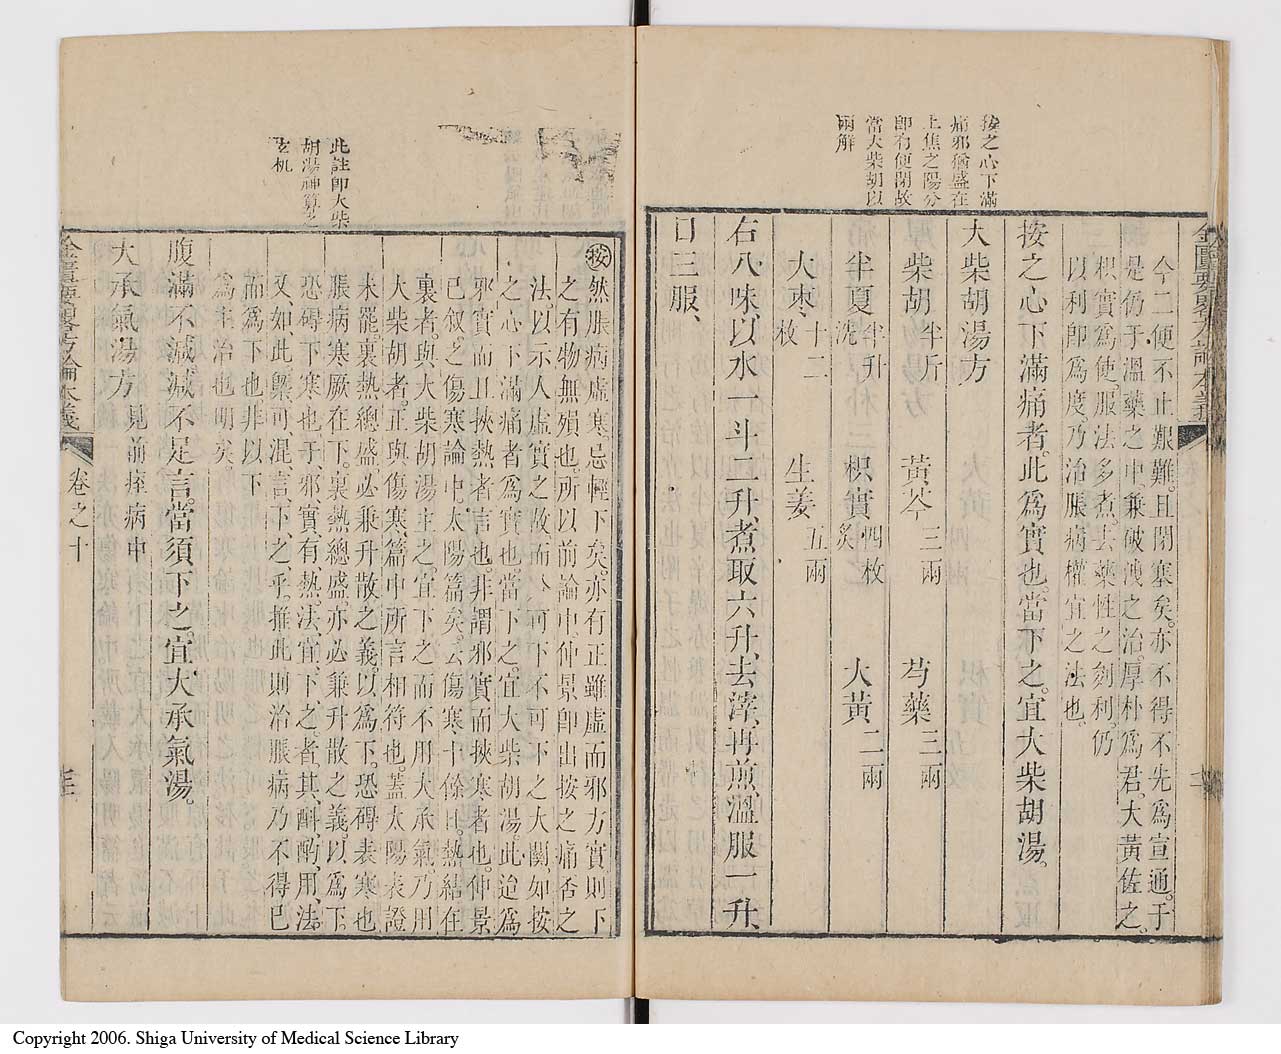 按之心下滿
痛邪猶盛在
上焦之陽分
卽有便閉故
當大柴胡以
兩解
今二便不止艱難。且閉塞矣。亦不得不先爲宣通。于
是仍于溫藥之中、兼破洩之治。厚朴爲君、大黃佐之。
枳實爲使。服法多煮。去藥性之刻利。仍
以利卽爲度、乃治脹病權宜之法也。
按之心下滿痛者。此爲實也。當下之。宜大柴胡湯。
大柴胡湯方
柴胡半斤 黃芩三兩 芍藥三兩
半夏半升洗 枳實四枚炙 大黃二兩
大棗十二枚 生姜五兩
右八味、以水一斗二升、煮取六升、去滓、再煎、溫服一升、
日三服、
此註卽大柴
胡湯神算之
玄机
按 然脹病虛寒。忌輕下矣。亦有正雖虛而邪方實、則下
之有物無殞也。所以前論中、仲景卽出按之痛否之
法、以示人虛實之故、而分可下不可下之大關、如按
之心下滿痛者、爲實也、當下之。宜大柴胡湯、此迨爲
邪實而且挾熱者言也。非謂邪實而挾寒者也。仲景
已叙之傷寒論中、太陽篇矣。云傷寒十餘日、熱結在
裏者。與大柴胡湯主之。宜下之而不用大承氣、乃用
大柴胡者。正與傷寒篇中所言相符也。蓋太陽表證
未罷。裏熱總盛、必兼升散之義。以爲下。恐碍表寒也
脹病寒厥在下。裏熱總盛、亦必兼升散之義。以爲下。
恐碍下寒也。于邪實有熱法、宜下之者。其斟酌用法。
又如此、槩可混言下之乎。推此則治脹病乃不得已
而爲下也。非以下
爲主治也明矣。
腹滿不減。減不足言。當須下之。宜大承氣湯。
大承氣湯方 見前痙病中
金匱要畧方論本義
卷之十